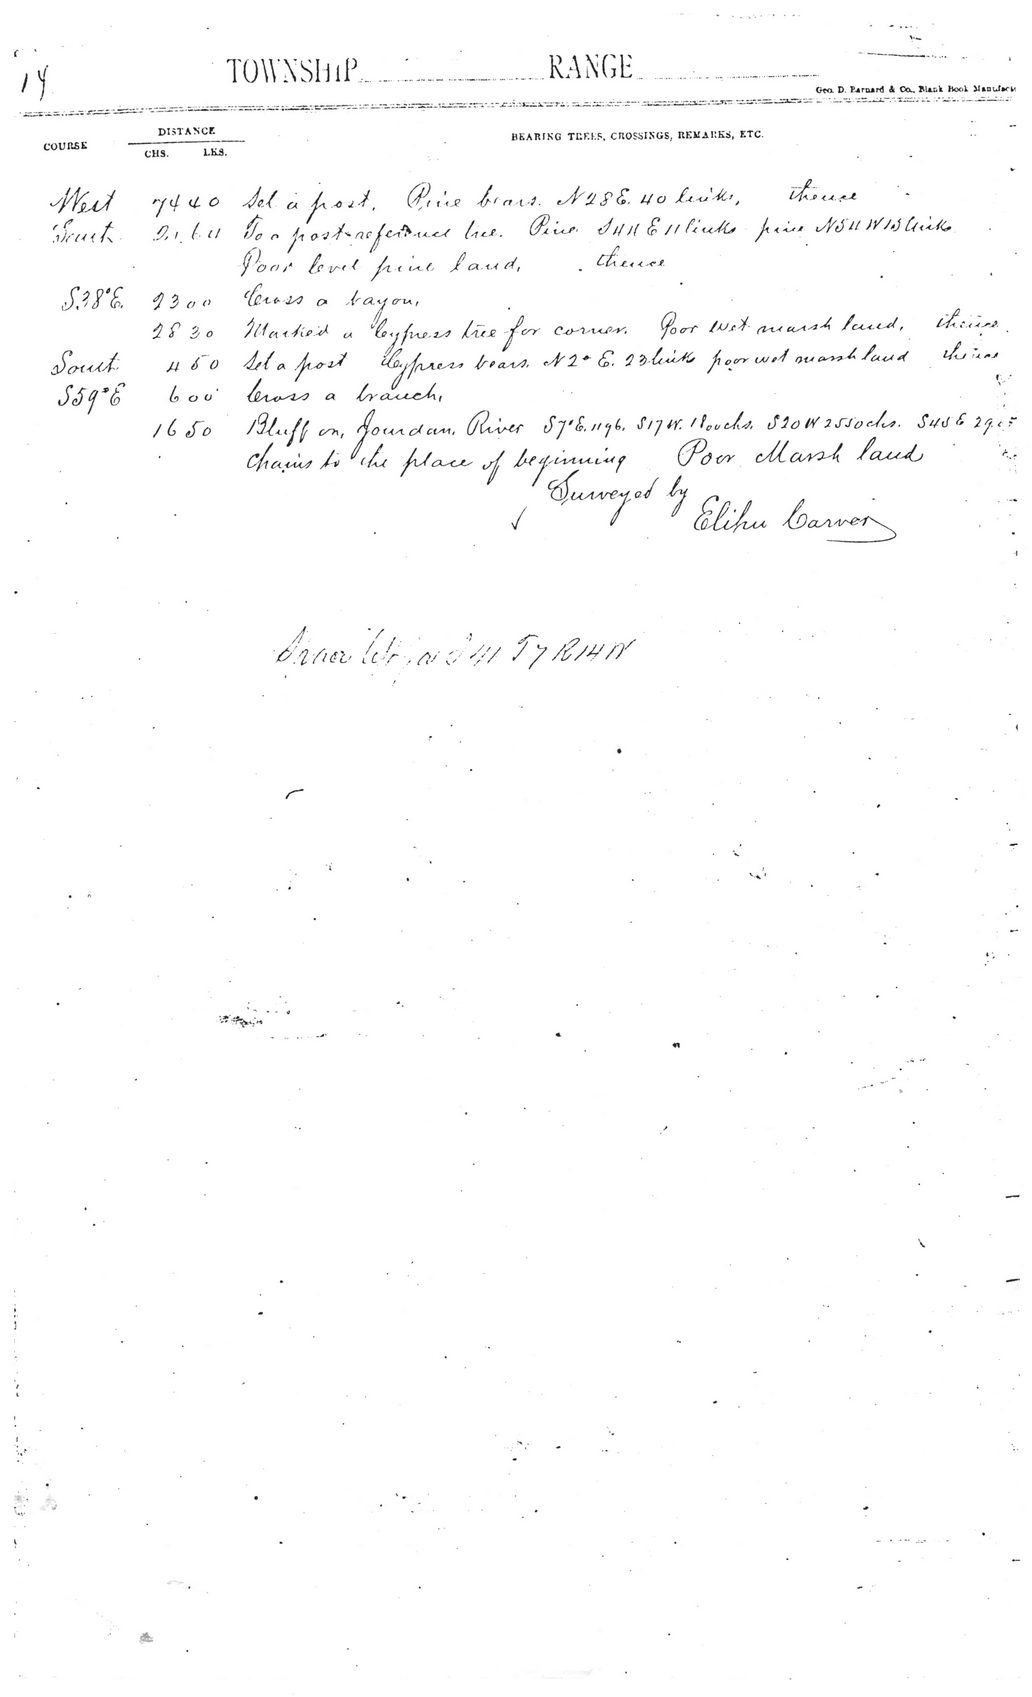 14
TOWNSHIP RANGE
Geo. D. Barnard & Co., Blank Book Manufact
COURSE DISTANCE BEARING TREES, CROSSINGS, REMARKS, ETC.
CHS. LKS.
West 74 40 Set a post. Pine bears N28E. 40 links, thence
South To a post reference tree. Pine S44E 11 links pine N54W 15 links
Poor level pine land, thence
S38°E. 23 00 Cross a bayou,
28 30 Marked a Cypress tree for corner. Poor wet marsh land, thence
South 4 50 Set a post Cypress bears N2° E. 23 links poor wet marsh land thence
S59°E 6 00 Cross a branch,
16 50 Bluff on, Jourdan River S7°E. 1196. S17W. 1800chs. S20W 2550chs. S45E
Chains to the place of beginning Poor Marsh land
Surveyed by
Elihu Carver
41 T7 R14W